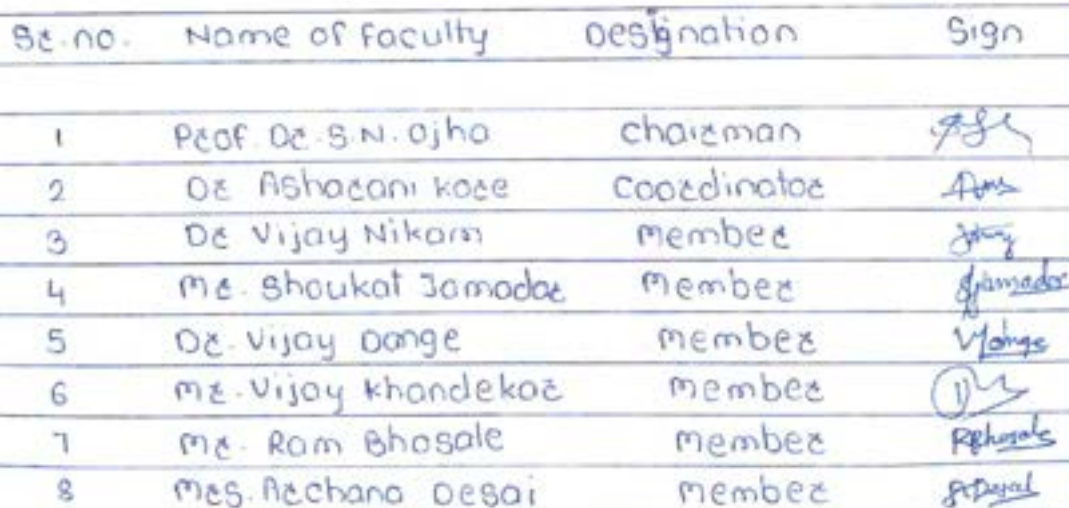 Sr.no. Name of Faculty Designation Sign
1 Prof. Dr. S.N. Ojha chairman
2 Dr Asharani kore Coordinator
3 Dr Vijay Nikam member
4 Mr. Shoukat Jamadar Member Jamadar
5 Dr. Vijay Dange member
6 Mr. Vijay Khandekar member
7 Mr. Ram Bhosale member RBhosale
8 Mrs. Archana Desai member Desai